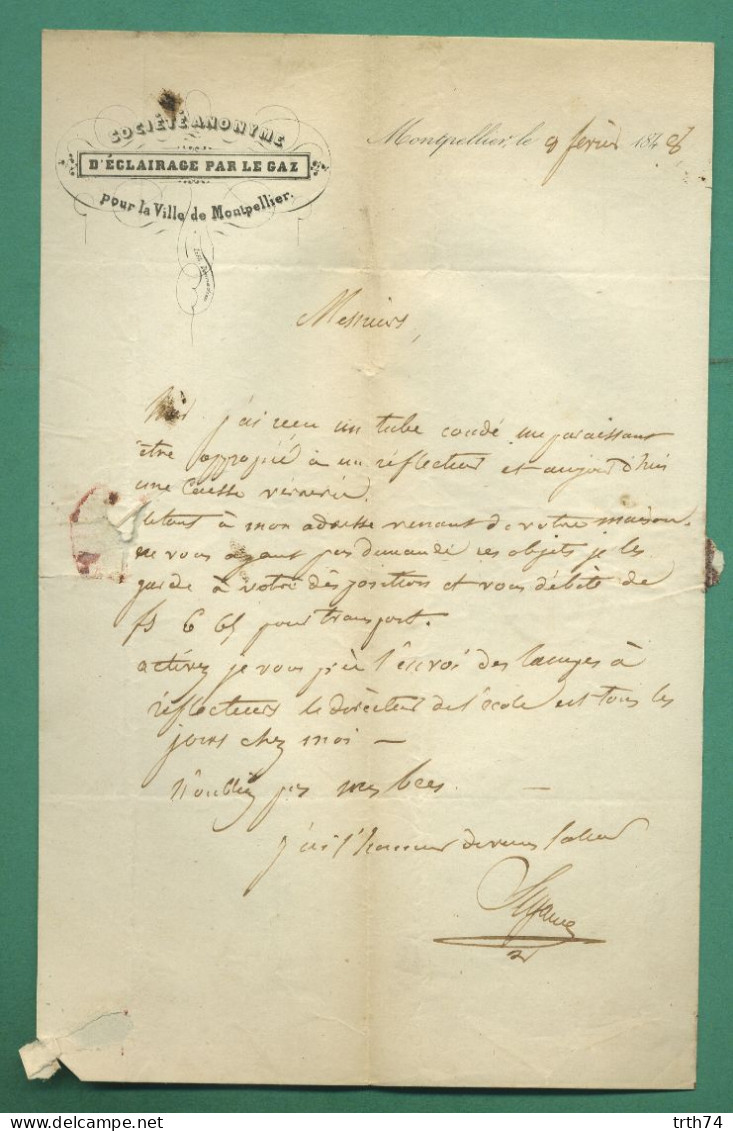 SOCIÉTÉ ANONYME
D'ÉCLAIRAGE PAR LE GAZ
pour la Ville de Montpellier.
Montpellier, le 9 février 1848
Messieurs,
hier j'ai reçu un tube coudé me paraissant
être approprié à un réflecteur et aujourd'hui
une Caisse verrerie.
Le tout à mon adresse venant de votre maison.
ne vous ayant pas demandé ces objets je les
garde à votre disposition et vous débite de
fs 6 65 pour transport.
activez je vous prie l'envoi des lampes à
réflecteurs le directeur de l'école est tous les
jours chez moi —
N'oubliez pas mes becs. —
j'ai l'honneur de vous saluer
trth74